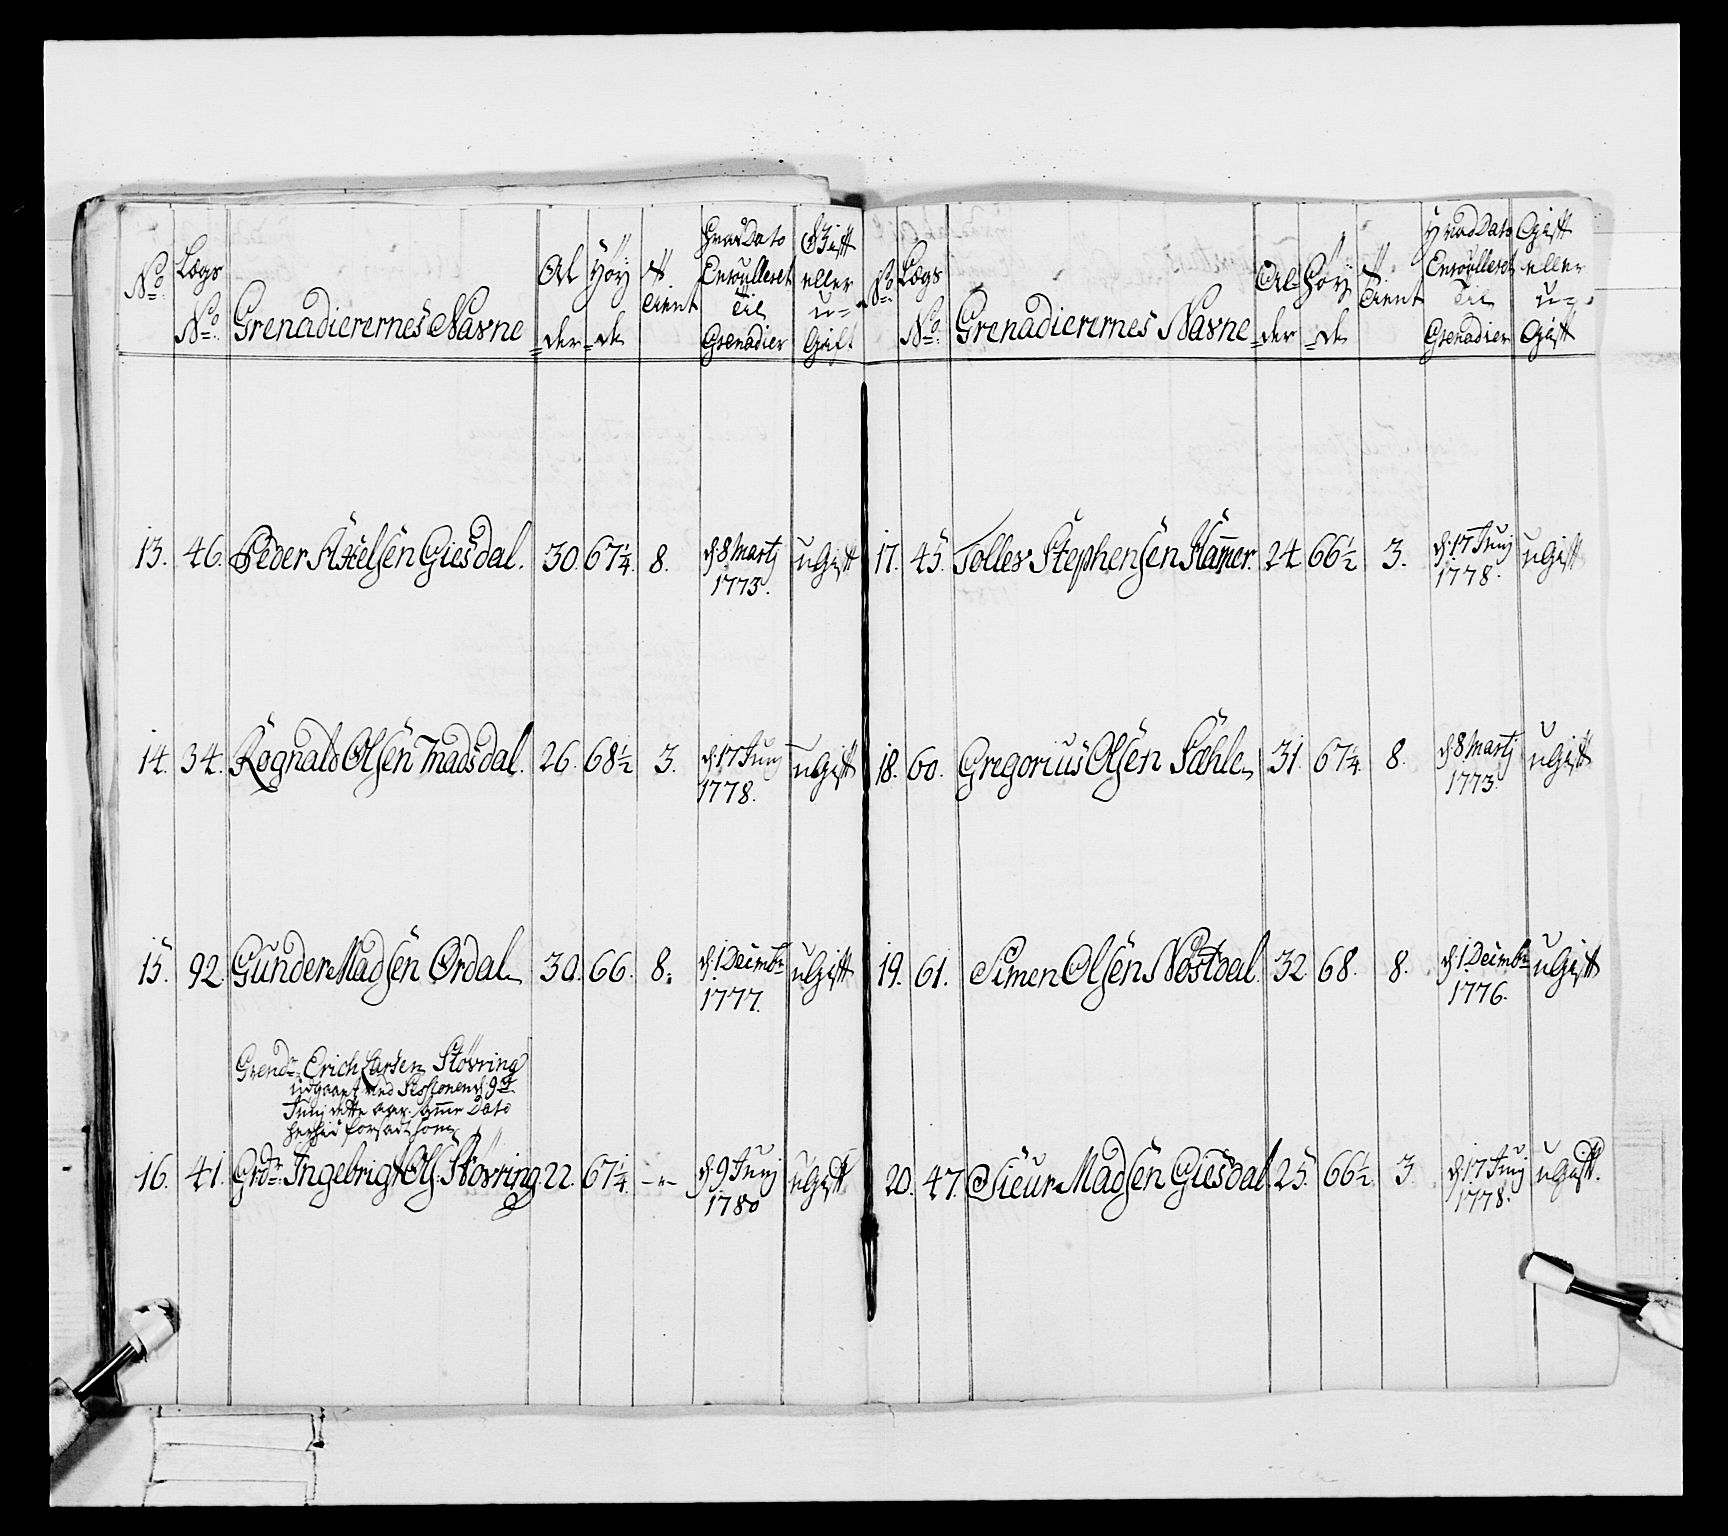 No. Lægs No. Grenadierernes Navne Al=der Høy=de Tient Hvad Dato Enroulleret Til Grenadier Gift eller u=Gift
13. 46. Peder Axelsen Giesdal. 30. 67 1/4. 8. d: 8 Martj 1773. uGift
14. 34. Rognald Olsen Madsdal. 26. 68 1/2 3. d: 17 Junj 1778. uGift
15. 92. Gunder Madsen Ørdal 30. 66. 8. d: 1 Decimbr 1777. uGift
Grendr Erich Larsen Støvring
udgaaet ved Sessionen d: 9de
Junj dette aar. samme Dato
herved forsadt som
16. 41. Grdr: Ingebrigt Ols: Støvring 22. 67 1/4 -"- d: 9 Junj 1780 uGift
No. Lægs No. Grenadierernes Navne Al=der Høy=de Tient Hvad Dato Enroulleret Til Grenadier Gift eller u=Gift
17. 45. Tolles Stephensen Hammer. 24 66 1/2 3. d: 17 Junj 1778. uGift
18. 60. Gregorius Olsen Sæhle 31. 67 1/4. 8. d: 8 Martj 1773. uGift
19. 61. Simen Olsen Nøstdal. 32 68. 8. d: 1 Decimbr 1776. uGift
20. 47. Sieur Madsen Giesdal. 25. 66 1/2. 3 d: 17 Junj 1778. uGift.